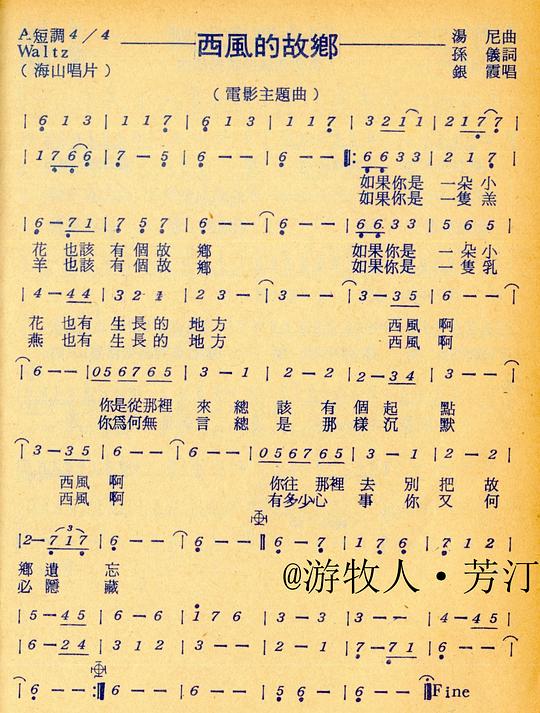 A短調 4/4
Waltz
(海山唱片)
西風的故鄉
湯 尼曲
孫 儀詞
銀 霞唱
(電影主題曲)
| 6 1 3 | 1 1 7 | 6 1 3 | 1 1 7 | 3 2 1 1 | 2 1 7 7 |
| 1 7 6 6 | 7 — 5 | 6 — — | 6 — — ‖: 6 6 3 3 | 2 1 7 |
如果你是 一朵 小
如果你是 一隻 羔
| 6 — 7 1 | 7 5 7 | 6 — — | 6 — — | 6 6 3 3 | 5 6 5 |
花 也該 有 個 故 鄉 如果你是 一朵 小
羊 也該 有 個 故 鄉 如果你是 一隻 乳
| 4 — 4 4 | 3 2 1 | 2 3 — | 3 — — | 3 — 3 5 | 6 — — |
花 也有 生 長 的 地 方 西風 啊
燕 也有 生 長 的 地 方 西風 啊
| 6 — — | 0 5 6 7 6 5 | 3 — 1 | 2 — 2 | 2 — 3 4 | 3 — — |
你是從那裡 來 總 該 有 個 起 點
你為何無 言 總 是 那 樣 沉 默
| 3 — 3 5 | 6 — — | 6 — — | 0 5 6 7 6 5 | 3 — 1 | 2 — 2 |
西風 啊 你往 那裡 去 別 把 故
西風 啊 有多少心 事 你 又 何
| 2 — 7 1 7 | 6 — — | 6 — — ‖ 6 — 7 | 1 7 6 | 7 1 2 |
3
鄉 遺 忘
必 隱 藏
@游牧人·芳汀
| 5 — 4 5 | 6 — 6 | 1 7 6 | 3 — 3 | 3 — — | 4 — 4 5 |
| 6 — 2 4 | 3 1 2 | 3 — — | 2 — 1 | 7 — 7 1 | 6 — — |
| 6 — — :‖ 6 — — | 6 — — | 5 6 — | 6 — — ‖ Fine